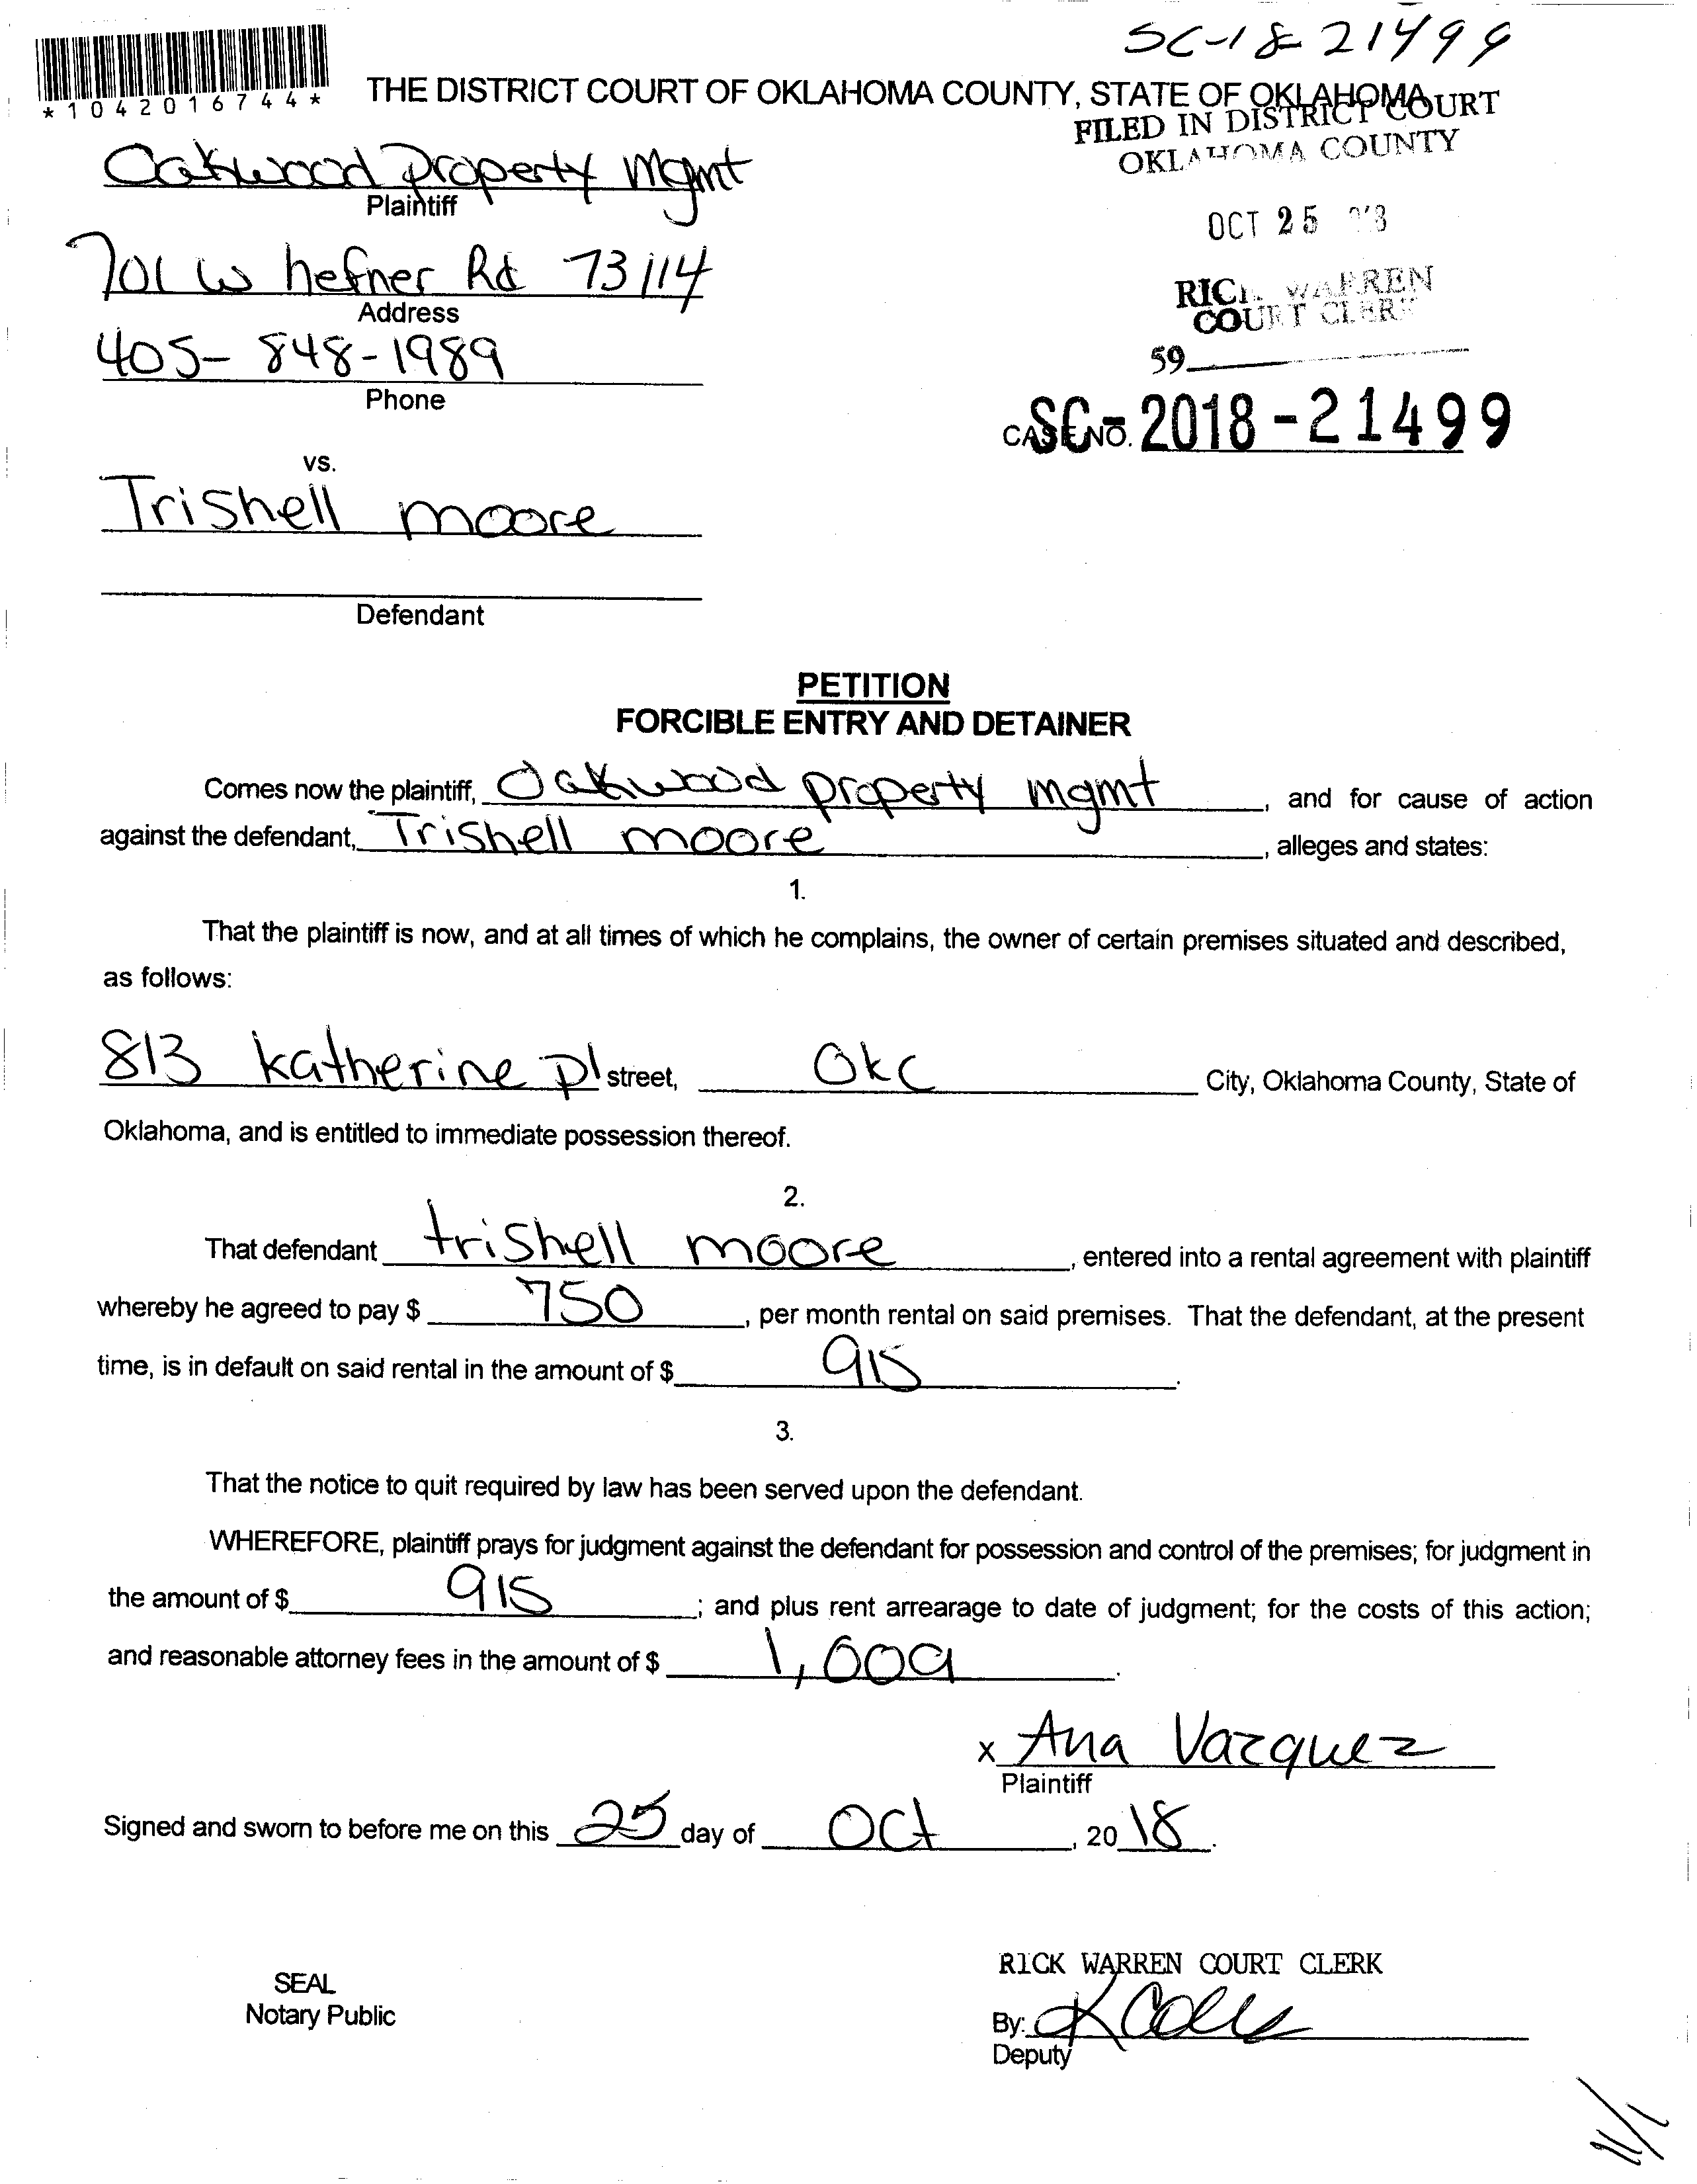 SC-18-21499
*1042016744*
THE DISTRICT COURT OF OKLAHOMA COUNTY, STATE OF OKLAHOMA
FILED IN DISTRICT COURT
OKLAHOMA COUNTY
Oakwood property mgmt
Plaintiff
OCT 25
701 W hefner Rd 73114
Address
RICK WARREN
COURT CLERK
405-848-1989
Phone
59
CASE NO. SC-2018-21499
vs.
Trishell moore
Defendant
PETITION
FORCIBLE ENTRY AND DETAINER
Comes now the plaintiff, Oakwood property mgmt, and for cause of action
against the defendant, Trishell moore, alleges and states:
1.
That the plaintiff is now, and at all times of which he complains, the owner of certain premises situated and described,
as follows:
813 katherine pl street, OKC City, Oklahoma County, State of
Oklahoma, and is entitled to immediate possession thereof.
2.
That defendant trishell moore, entered into a rental agreement with plaintiff
whereby he agreed to pay $ 750, per month rental on said premises. That the defendant, at the present
time, is in default on said rental in the amount of $ 915.
3.
That the notice to quit required by law has been served upon the defendant.
WHEREFORE, plaintiff prays for judgment against the defendant for possession and control of the premises; for judgment in
the amount of $ 915; and plus rent arrearage to date of judgment; for the costs of this action;
and reasonable attorney fees in the amount of $
x Ana Vazquez
Plaintiff
Signed and sworn to before me on this 25 day of Oct, 2018.
RICK WARREN COURT CLERK
SEAL
Notary Public
By:
Deputy
11/1